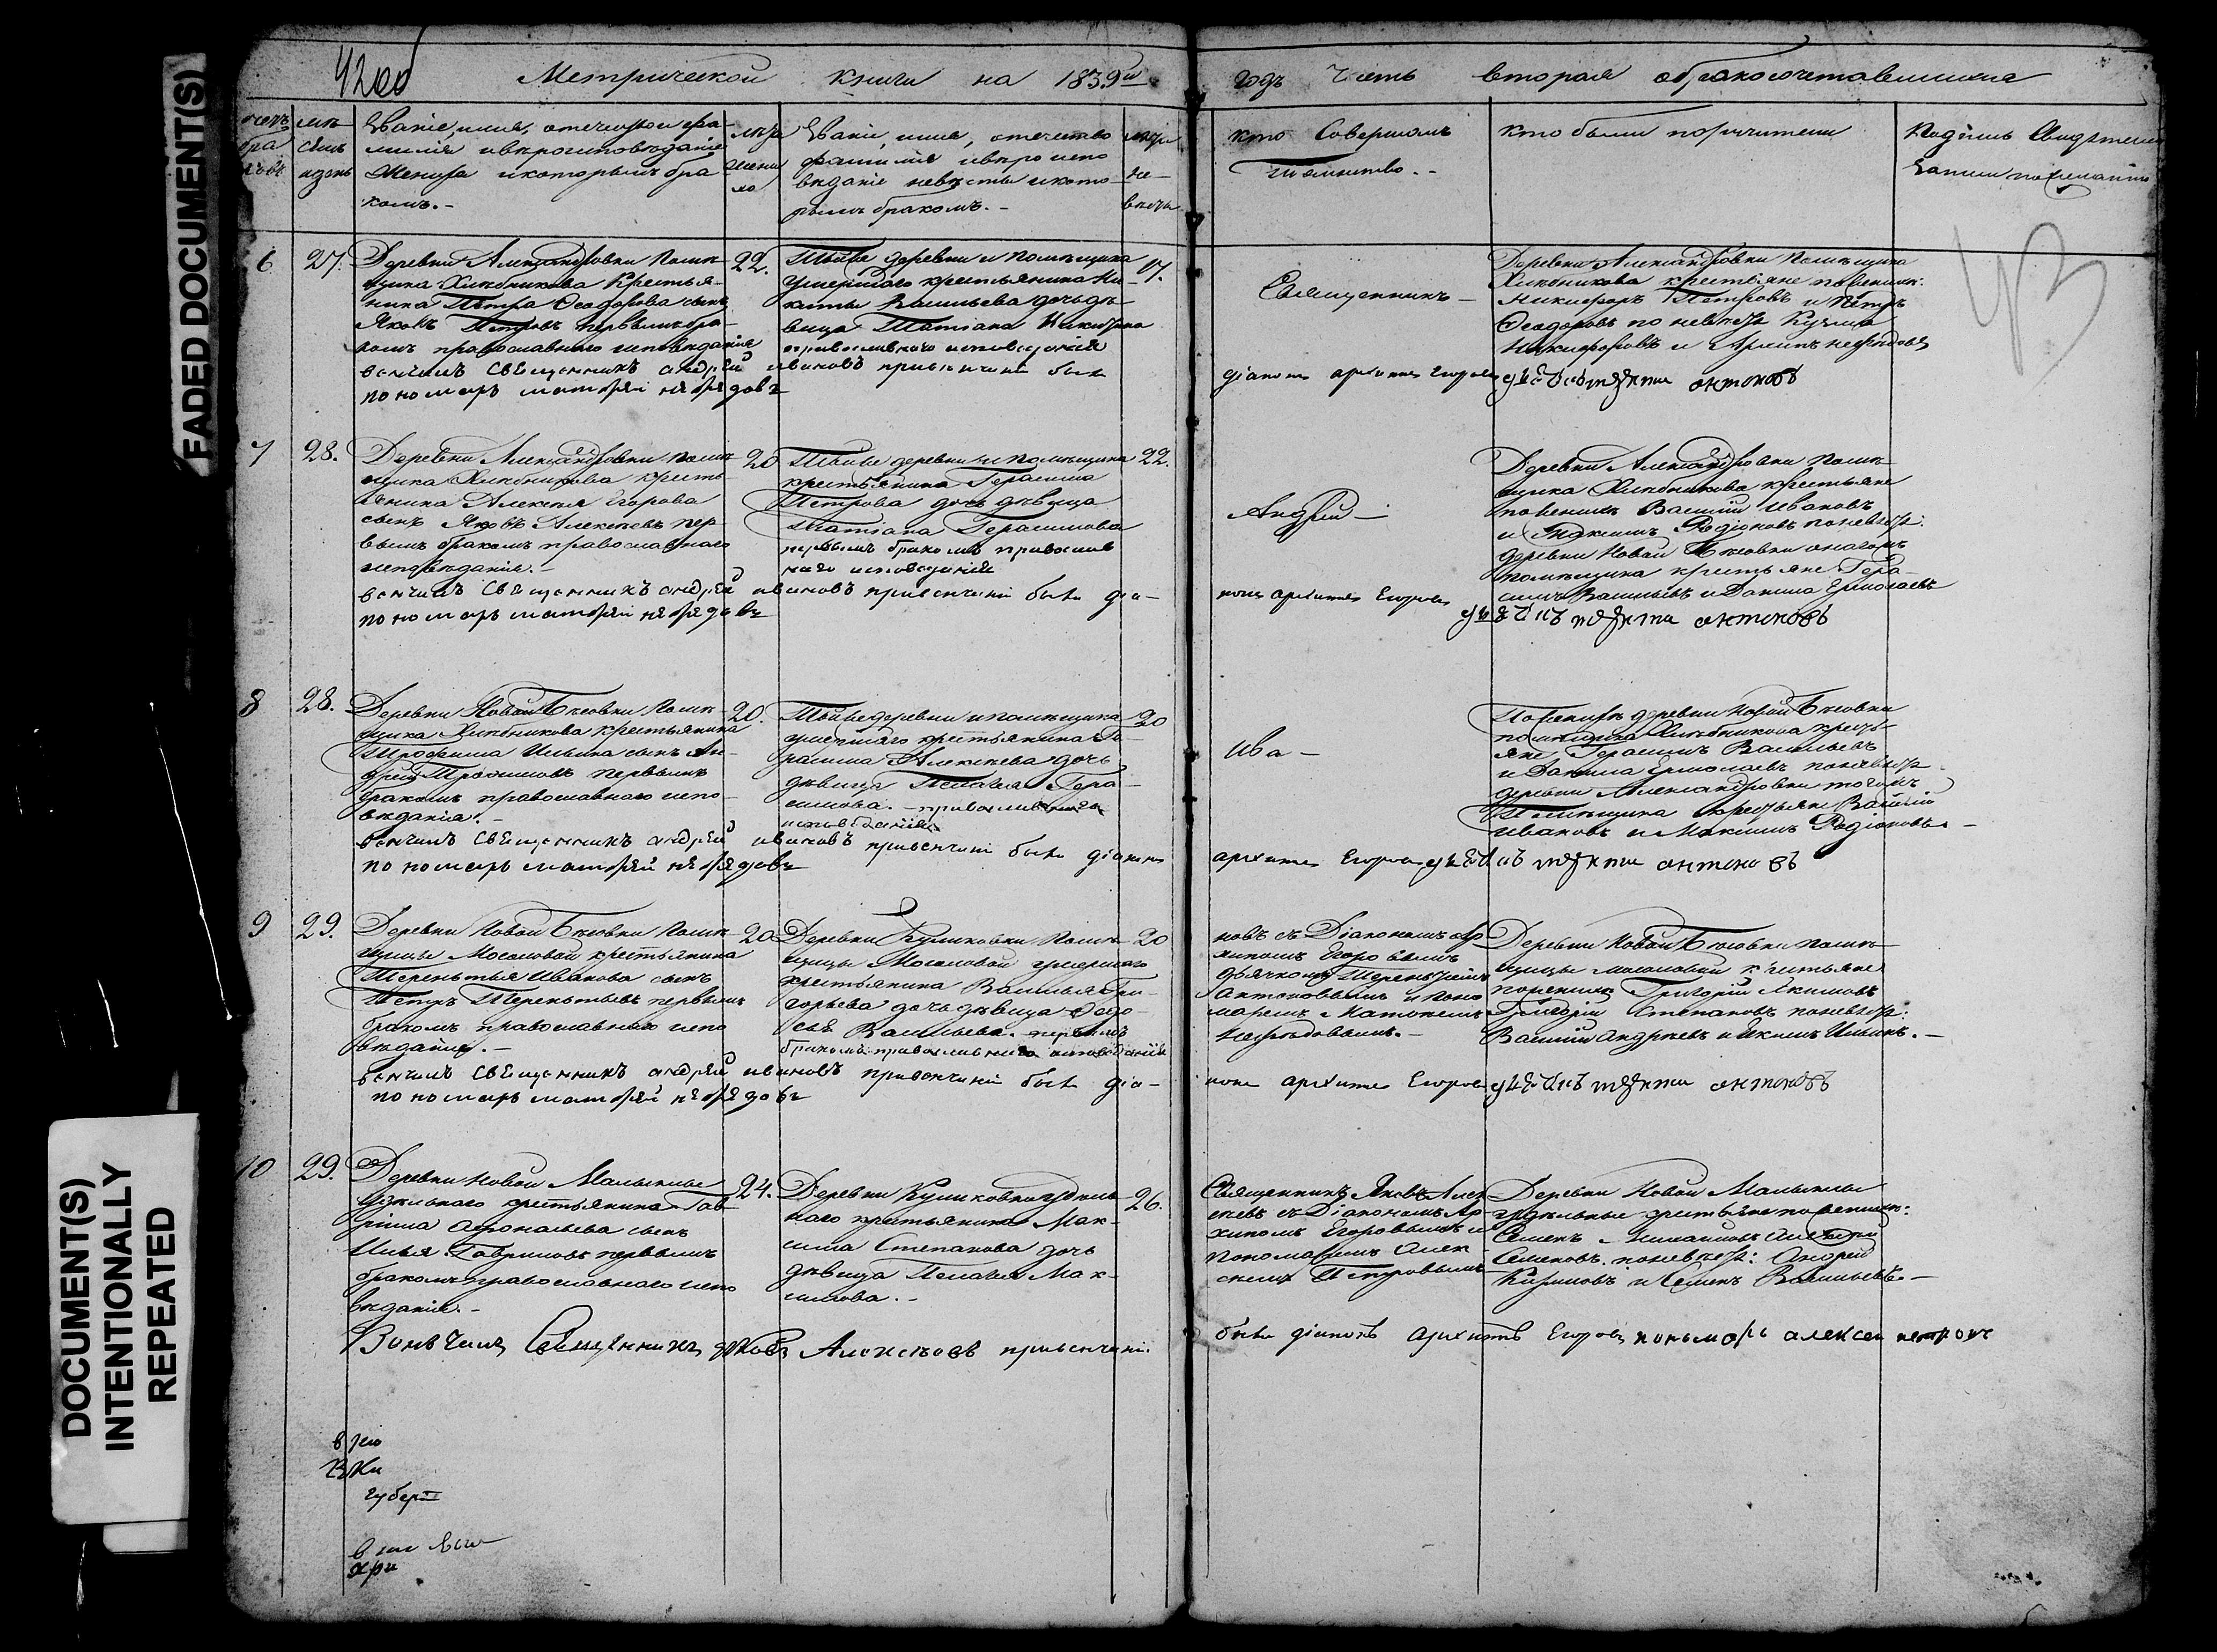 42 об
Метрической книги на 1839й годъ Часть вторая о бракосочетавшихся
Званіе, имя, отечество и фа-
милія и вѣроисповѣданіе
жениха и которымъ бра-
комъ.-
лѣта
жени
ха
Званіе, имя, отечество
фамилія и вѣроиспо
вѣданіе невѣсты и кото-
рымъ бракомъ.-
лѣта
не-
вѣсты
кто Совершалъ
таинство.-
кто были поручители
6 27.
Деревни Александровки помѣ-
щика Хлебникова Крестья-
нина Петра Феодорова сынъ
Яковъ Петровъ первымъ бра-
комъ православнаго исповѣданія
22.
Той же деревни и помѣщика
умершаго крестьянина Ни-
киты Васильева дочь дѣ-
вица Татіана Никитина
православнаго исповеданія
17.
Священникъ-
Деревни Александровки Помѣщика
Хлебникова крестьяне по жених:
Никифоръ Петровъ и Петръ
Феодоровъ по невѣстѣ Кузма
Никифоровъ и
венчалъ священникъ андрей ивановъ привенчани были
діаконъ архипъ Егоровъ антоновъ
пономарь матфей неѳедовъ
7 28.
Деревни Александровки помѣ-
щика Хлебникова кресть-
янина Алексея Егорова
сынъ Яковъ Алексеевъ пер-
вымъ бракомъ православнаго
исповѣданія.-
20
Той же деревни и помѣщика
крестьянина Герасима
Петрова дочь дѣвица
Татіана Герасимова
первымъ бракомъ православ
наго исповеданія
22.
Андрей-
Деревни Александровки помѣ-
щика Хлебникова крестьяне
по жених Василий Ивановъ
и Максимъ Родіоновъ по невѣстѣ:
деревни Новой
помѣщика крестьяне Гера-
симъ Васильевъ и Данила Ермолаевъ
венчалъ священникъ андрей ивановъ привенчани были діа-
конъ архипъ Егоровъ антоновъ
пономарь матфей неѳедовъ
8 28.
Деревни Новой помѣ-
щика Хлебникова крестьянина
Трофима Ильина сынъ Ан-
дрей Трофимовъ первымъ
бракомъ православнаго испо-
вѣданія.-
20.
Той же деревни и помѣщика
умершаго крестьянина Ге-
расима Алексеева дочь
дѣвица Пелагея Гера-
симова.- православнаго
исповѣданія
20
Ива-
По женихѣ деревни Новой
помѣщика Хлебникова кресть-
яне Герасимъ Васильевъ
и Данила Ермолаевъ по невѣстѣ
деревни Александровки того жъ
Помѣщика крестьяне Василий
Ивановъ и Максимъ Родіоновъ.-
венчалъ священникъ андрей ивановъ привенчани были діаконъ
архипъ Егоровъ антоновъ
пономарь матфей неѳедовъ
9 29.
Деревни Новой помѣ-
щицы Мосоловой крестьянина
Терентья Иванова сынъ
Петръ Терентьевъ первымъ
бракомъ православнаго испо
вѣданія.-
20
Деревни Куликовки Помѣ-
щицы Мосоловой умершаго
крестьянина Василья Гри-
горьева дочь дѣвица Федо-
сья Васильева. первымъ
бракомъ православнаго исповѣданія
20
новъ съ Діакономъ Ар
хипомъ Егоровымъ
дьячкомъ Терентіемъ
Антоновымъ и поно
маремъ Матфеемъ
Деревни Новой помѣ-
щицы Мосоловой крестьяне
по женихѣ Григорій Акимовъ
Григорій Степановъ по невѣстѣ:
Василий Андреевъ и Акимъ Ильинъ.-
венчалъ священникъ андрей ивановъ привенчани были діа-
конъ архипъ Егоровъ антоновъ
пономарь матфей неѳедовъ
10 29.
Деревни Новой Малыклы
удѣльнаго крестьянина Гав-
ріила Афонасьева сынъ
Илья Гавриловъ первымъ
бракомъ православнаго испо
вѣданія.-
24.
Деревни Куликовки удѣль-
наго крестьянина Мак-
сима Степанова дочь
дѣвица Пелагея Мак-
симова.-
26.
Священникъ Яковъ Алек
сеевъ съ Діакономъ Ар-
хипомъ Егоровымъ и
Пономаремъ Алек
сеемъ Петровымъ
Деревни Новой Малыклы
удѣльные крестьяне по жених:
Семенъ
Семеновъ. по невѣстѣ: Андрей
Кириловъ и Семенъ Васильевъ.-
Вонѣчалъ Священникъ Яковъ Алексѣевъ привенчани
были діаконъ Архипъ Егоровъ поньмарь алексеи петровъ
губер
43
FADED DOCUMENT(S)
DOCUMENT(S)
INTENTIONALLY
REPEATED